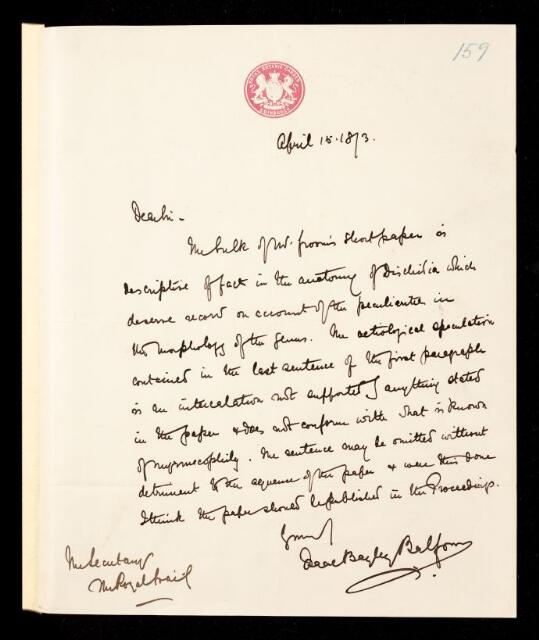 159
April 15. 1893.
Dear Sir -
The bulk of Mr. Groom's short paper is
descriptive of fact in the anatomy of Dischidia which
deserve record on account of the peculiarities in
the morphology of the genus. The aetiological speculation
contained in the last sentence of the first paragraph
is an intercalation not supported by anything stated
in the paper & does not conform with what is known
of myrmecophily. The sentence may be omitted without
detriment to the sequence of the paper & were this done
I think the paper should be published in the Proceedings.
Isaac Bayley Balfour
The Secretary
The Royal Society